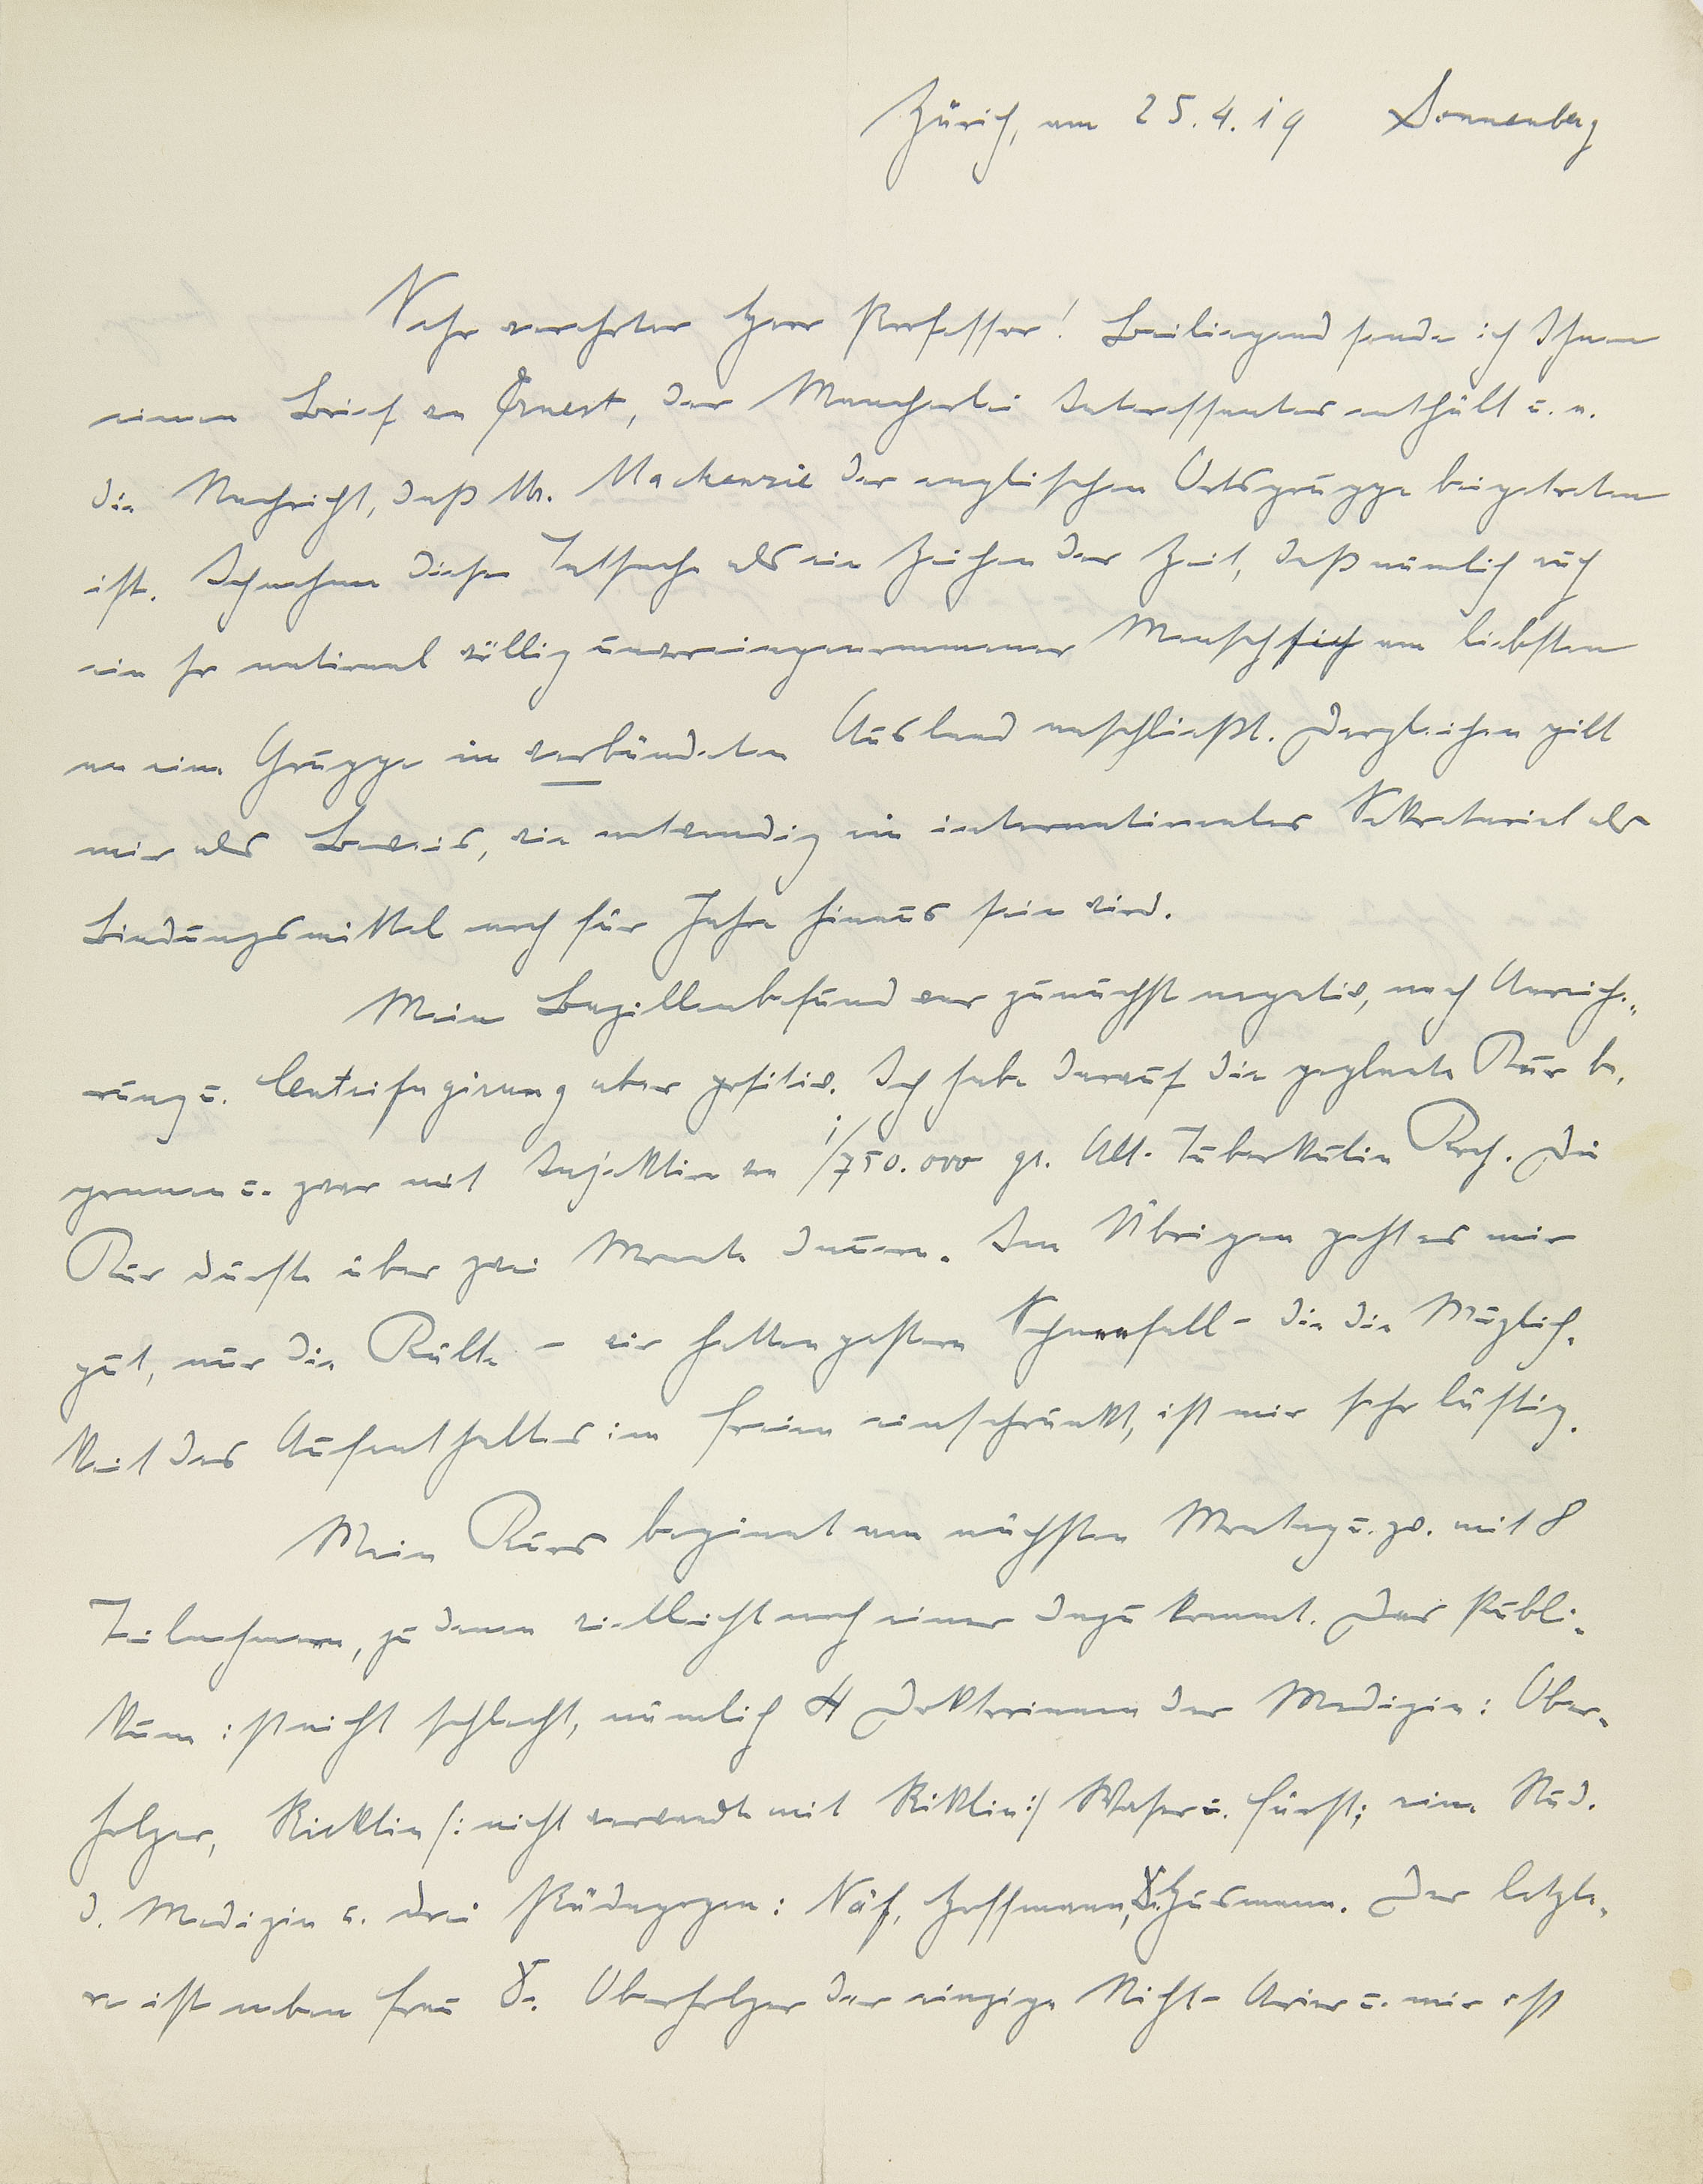 Zürich, am 25.4.19 Sonnenberg
Sehr verehrter Herr Professor! Beiliegend sende ich Ihnen
einen Brief von Ernest, der Mancherlei Interessantes enthält u. a.
die Nachricht, daß M. Mackenzie der englischen Ortsgruppe beigetreten
ist. Ich nehme diese Tatsache als ein Zeichen der Zeit, daß nämlich auch
ein so national völlig unvoreingenommener Mensch sich am liebsten
an eine Gruppe im verbündeten Ausland anschließt. Dergleichen gilt
mir als Beweis, wie notwendig ein internationales Sekretariat als
Bindungsmittel noch für Jahre hinaus sein wird.
Mein Bazillenbefund war zunächst negativ, nach Anreiche-
rung u. Centrifugierung aber positiv. Ich habe darauf die geplante Kur be-
gonnen u. zwar mit Injektion von 1/750.000 gr. Alt-Tuberkulin Koch. Die
Kur dürfte über zwei Monate dauern. Im Übrigen geht es mir
gut, nur die Kälte – wir hatten gestern Schneefall – die die Möglich-
keit des Aufenthaltes im Freien einschränkt, ist mir sehr lästig.
Mein Kurs beginnt am nächsten Montag u. zw. mit 8
Teilnehmern, zu denen vielleicht noch einer dazu kommt. Das Publi-
kum ist nicht schlecht, nämlich 4 Doktorinnen der Medizin: Ober-
holzer, Ricklin /: nicht verwandt mit Riklin :/ Waser u. Fürst; eine Stud.
d. Medizin u. drei Pädagogen: Näf, Hoffmann, Dr. Husmann. Der letzte-
re ist neben Frau Dr. Oberholzer der einzige Nicht-Arier u. mir erst